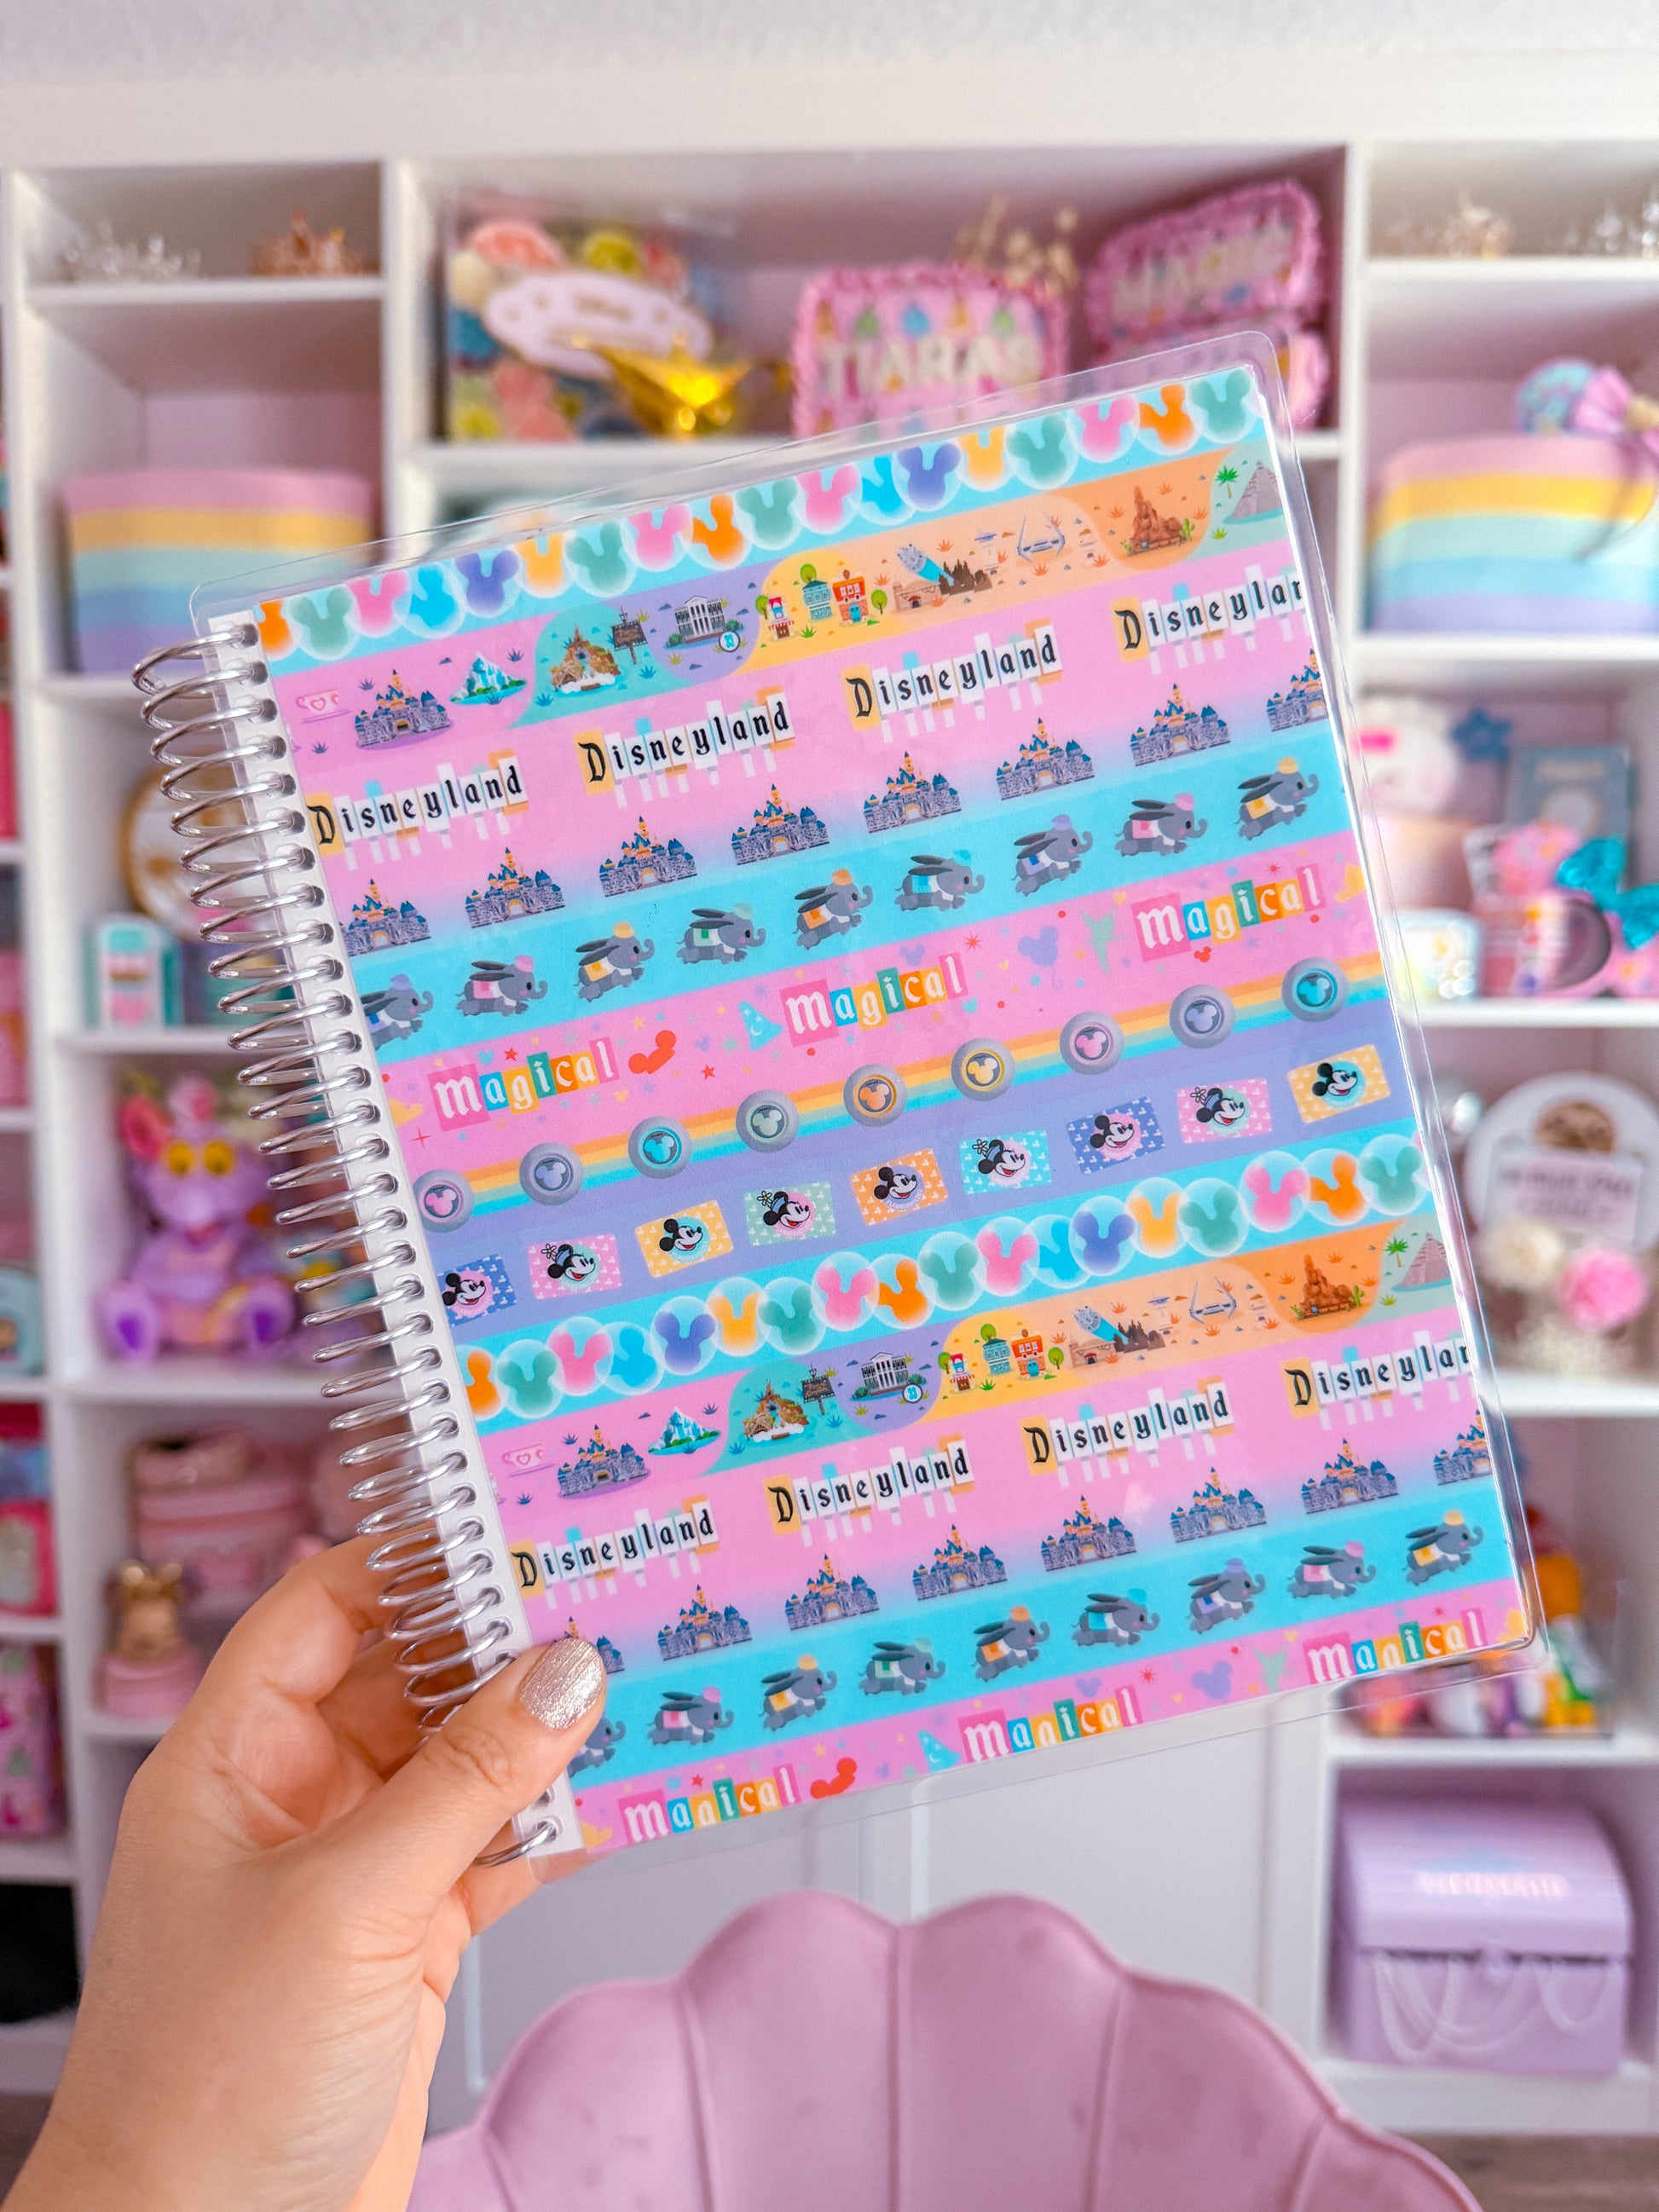 TIARAS
MAGIC
Disneyland Disneyland Disneyland Disneylan
magical magical magical
Disneyland Disneyland Disneyland Disneylan
magical magical magical